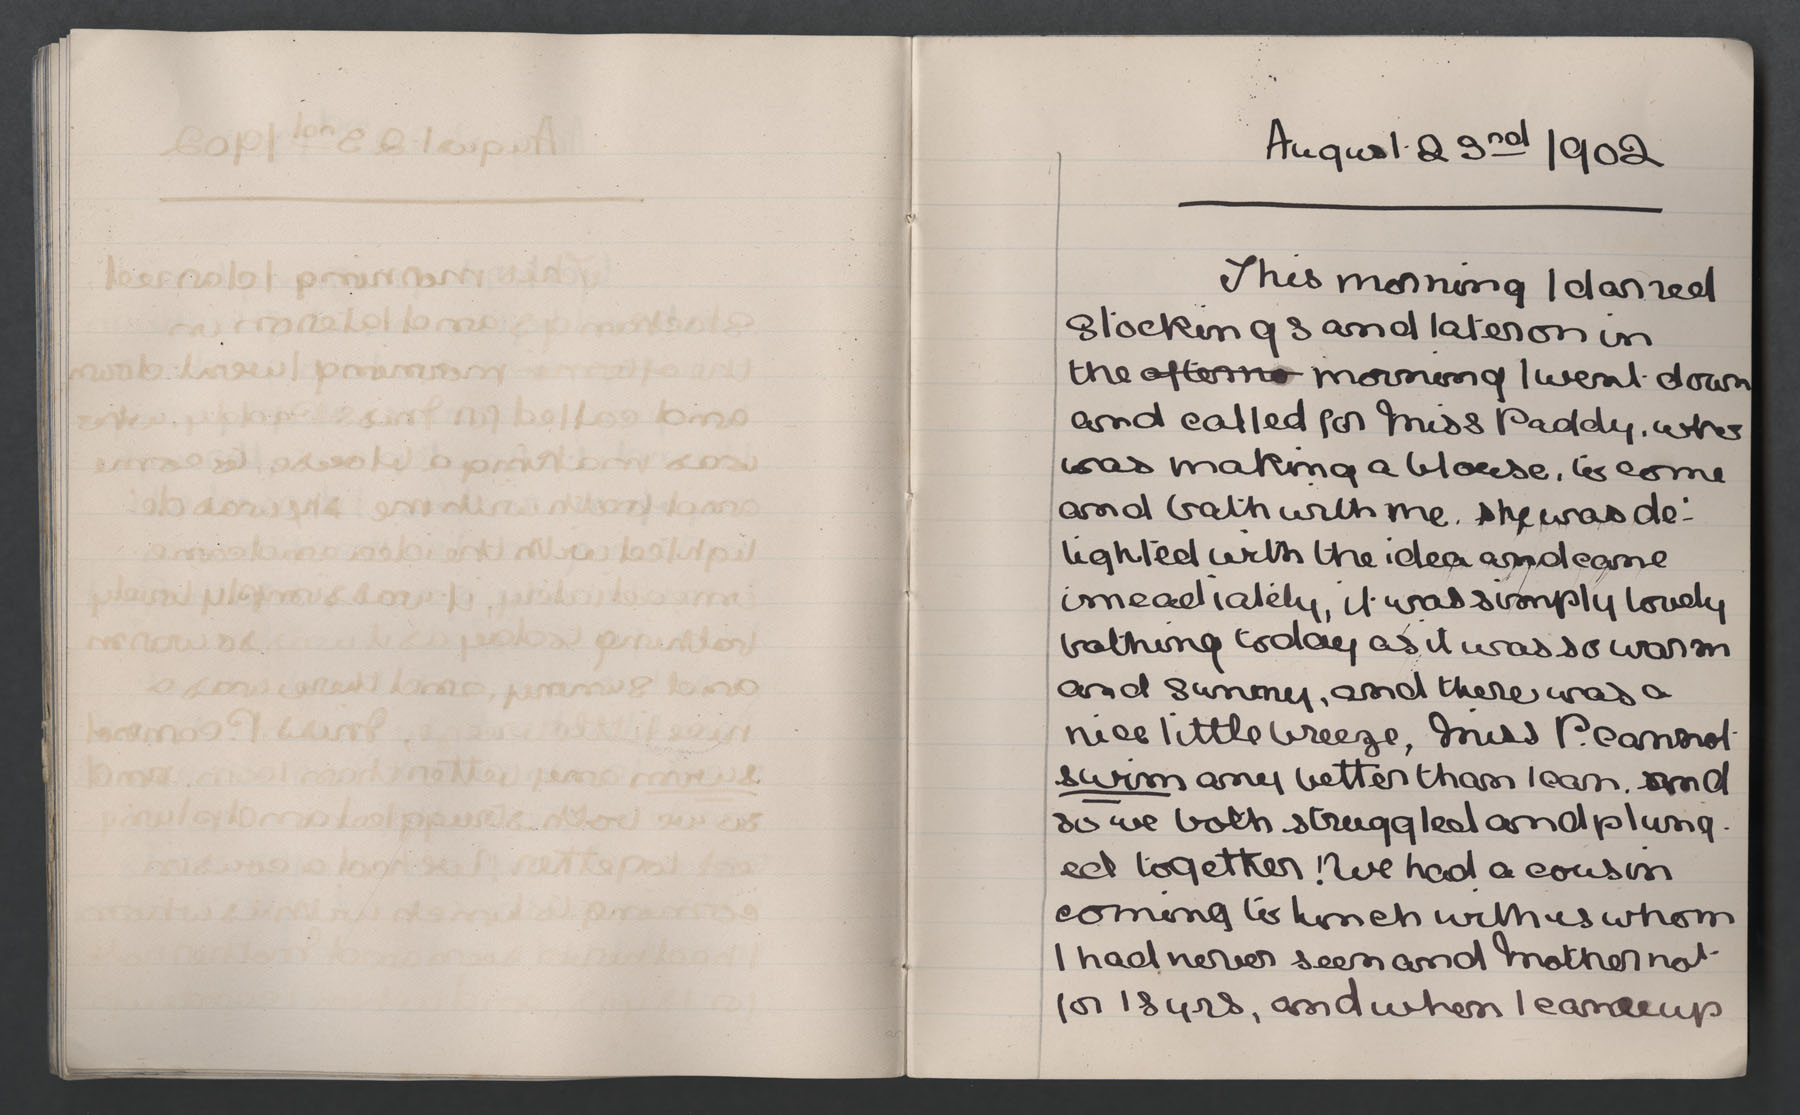 August 23nd 1902
This morning I darned
stockings and later on in
the afterno morning I went down
and called for Miss Paddy, who
was making a blouse, to come
and bath with me. she was de-
lighted with the idea and came
imeadiately, it was simply lovely
bathing today as it was so warm
and sunny, and there was a
nice little breeze, Miss P. cannot
swim any better than I can. and
so we both struggled and plung-
ed together! We had a cousin
coming to lunch with us whom
I had never seen and Mother not
for 18 yrs, and when I came up